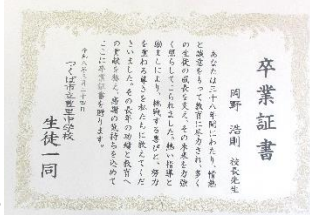 卒業証書
岡野 浩則 校長先生
あなたは三十八年間にわたり、情熱
と誠意をもって教育に尽力され、多く
の生徒の成長を支え、その未来を力強
く照らしてこられました。熱い指導と
励ましにより、挑戦する喜びと、努力
を重ねる尊さを私たちに教えてくだ
さいました。その長年の功績と教育へ
の貢献を称え、感謝の気持ちを込めて
ここに卒業証書を贈ります。
つくば市立豊里中学校
生徒一同